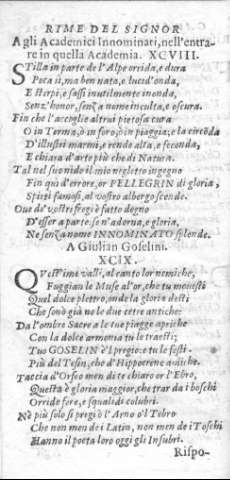 RIME DEL SIGNOR
A gli Academici Innominati, nell'entra-
re in quella Academia. XCVIII.
STilla in parte de l'Alpe orrida, e dura
Poca sì, ma ben nata, e lucid'onda,
E sterpi, e sassi inutilmente inonda,
Senz'honor, senza nome inculta, e oscura.
Fin che l'accoglie altrui pietosa cura
O in Terma, ò in foro, ò in piaggia; e la circōda
D'illustri marmi, e rende alta, e feconda,
E chiara d'arte più che di Natura.
Tal nel suo nido il mio negletto ingegno
Fin quì d'errore, or PELLEGRIN di gloria,
Spirti famosi, al vostro albergo scende.
Que de' vostri fregi è fatto degno
D'esser à parte, se n'adorna, e gloria,
Ne senza nome INNOMINATO splende.
A Giulian Goselini.
XCIX.
QVest'ime valli, al canto lor nemiche,
Fuggian le Muse al'or, che tu movesti
Quel dolce plettro, onde la gloria desti
Che sonò già ne le due cetre antiche:
Da l'ombre Sacre a le tue piagge apriche
Con la dolce armonia tu le traesti;
Tuo GOSELIN è'l pregio: e tu le festi
Più del Tesin, che d'Hippocrene amiche.
Taccia d'Orfeo men di te chiaro or l'Ebro,
Questa è gloria maggior, che trar da i boschi
Orride fere, e squalidi colubri.
Nè più solo si pregi ò l'Arno ò'l Tebro
Che non men de i Latin, non men de i Toschi
Hanno il poeta loro oggi gli Insubri.
Rispo-